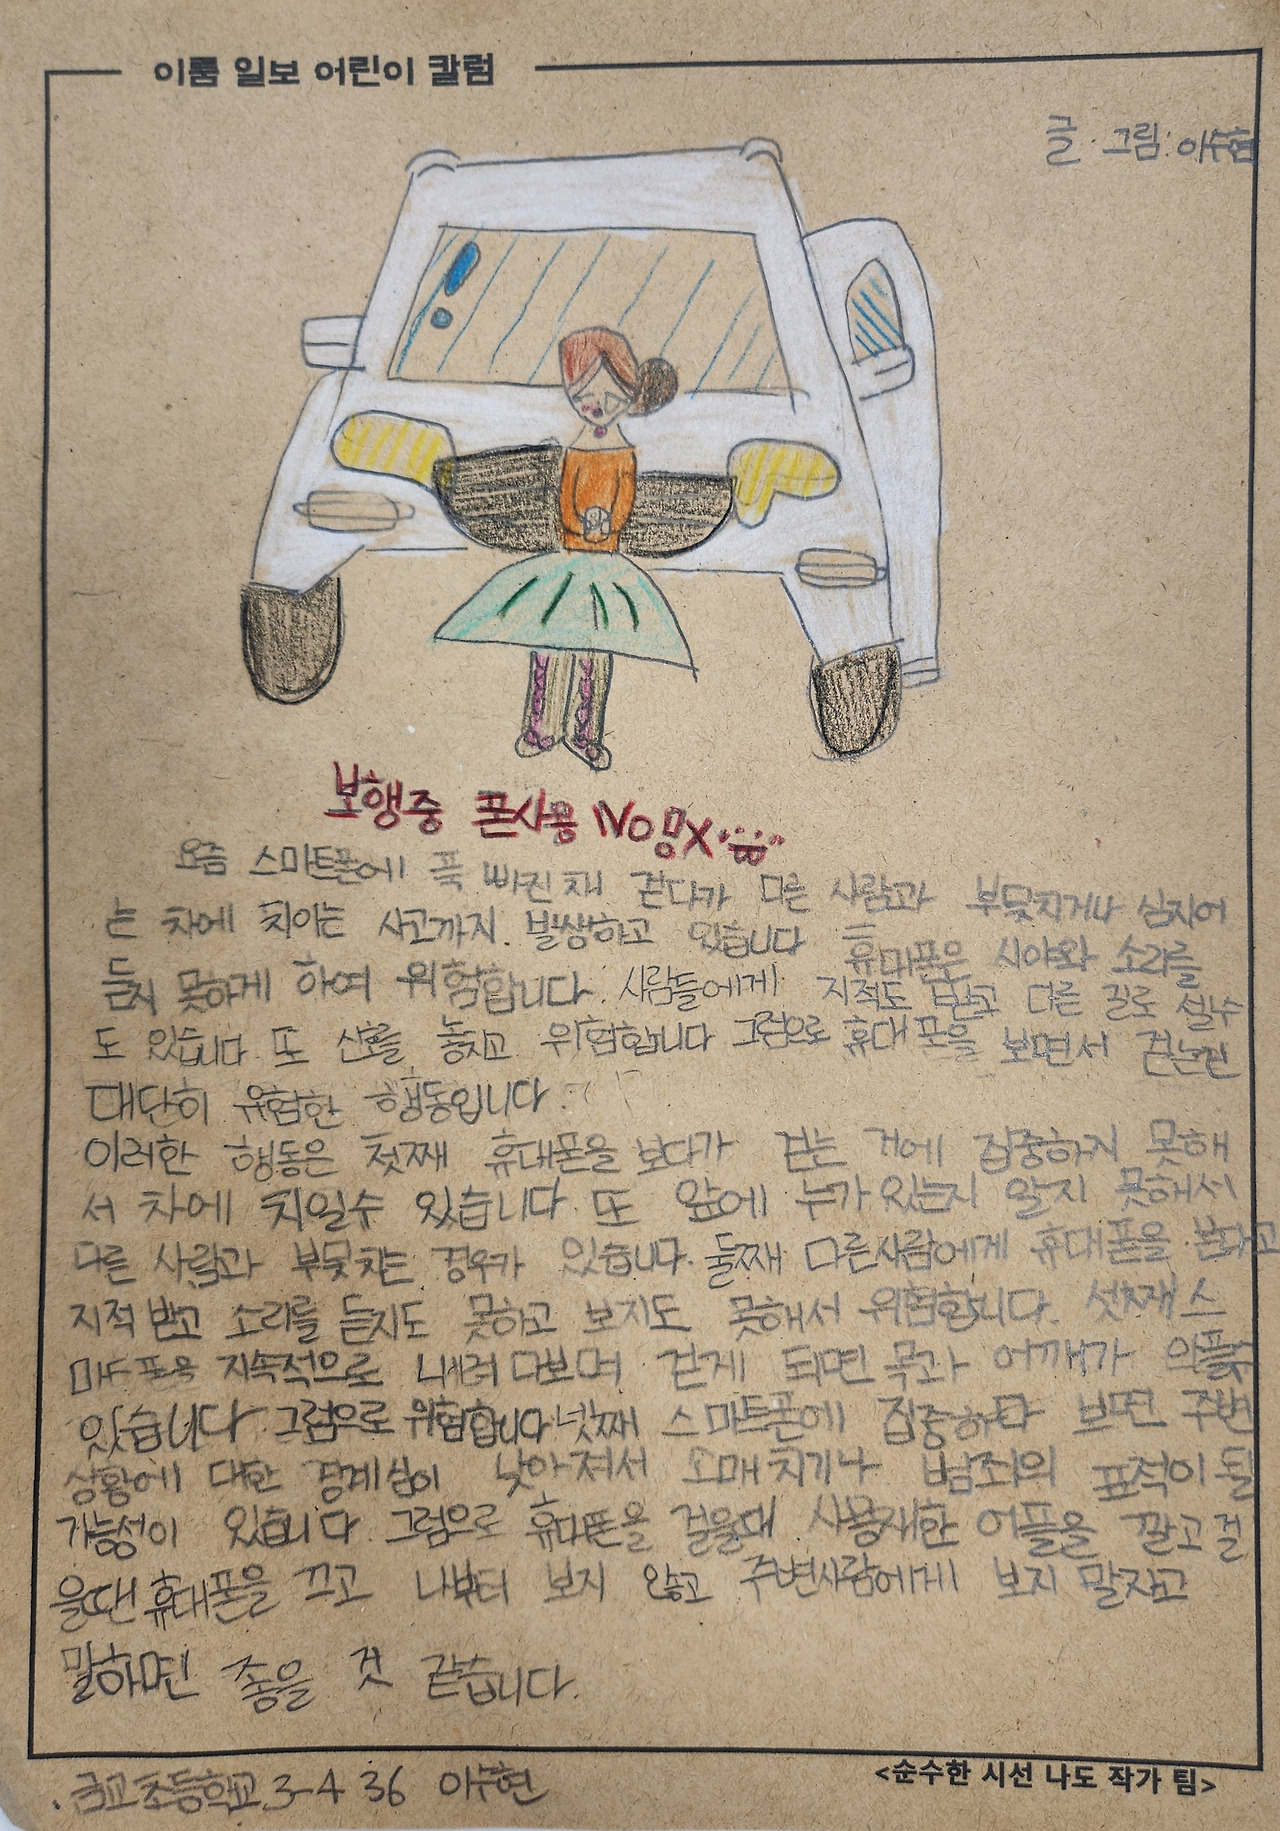 이룸 일보 어린이 칼럼
글·그림: 이수현
보행중 폰사용 NO
요즘 스마트폰에 푹 빠진채 걷다가 다른 사람과 부딪치거나 심지어
는 차에 치이는 사고까지 발생하고 있습니다 휴대폰은 시야와 소리를
듣지 못하게 하여 위험합니다. 사람들에게 지적도 받고 다른 길로 셀수
도 있습니다 또 신호를 놓치고 위험합니다 그럼으로 휴대폰을 보면서 걷는건
대단히 위험한 행동입니다.
이러한 행동은 첫째 휴대폰을 보다가 걷는 거에 집중하지 못해
서 차에 치일수 있습니다 또 앞에 누가 있는지 알지 못해서
다른 사람과 부딪치는 경우가 있습니다. 둘째 다른사람에게 휴대폰을 본다고
지적 받고 소리를 듣지도 못하고 보지도 못해서 위험합니다. 셋째 스
마트폰을 지속적으로 내려다보며 걷게 되면 목과 어깨가 아플수
있습니다 그럼으로 위험합니다 넷째 스마트폰에 집중하다 보면 주변
상황에 대한 경계심이 낮아져서 소매치기나 범죄의 표적이 될
가능성이 있습니다 그럼으로 휴대폰을 걸을때 어플을 깔고 걸
을땐 휴대폰을 끄고 나부터 보지 않고 주변사람에게 보지 말자고
말하면 좋을 것 같습니다.
금교초등학교 3-4 36 이수현
<순수한 시선 나도 작가 팀>